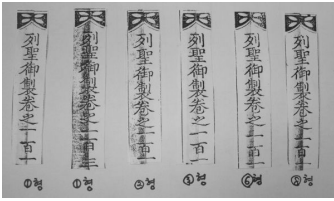 列聖御製卷之一百一
列聖御製卷之一百三
列聖御製卷之一百一
列聖御製卷之一百一
列聖御製卷之一百一
列聖御製卷之一百一
①형 ①형 ②형 ⑤형 ⑥형 ⑧형